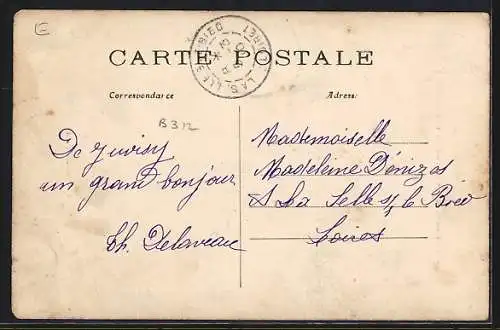 E
CARTE POSTALE
Correspondance
Adresse
B312
De Juvisy
un grand bonjour
Th. Delaveau
Mademoiselle
Madeleine Dénizas
A La Selle s/ le Bied
Loiret
LA SELLE
LOIRET